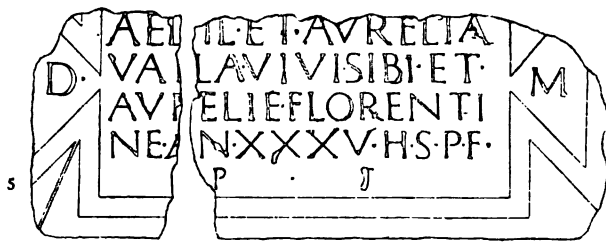 AEL IL·ET·AVRELIA
D· VA LAVIVISIBI·ET· M
AVRELIEFLORENTI
NE·AN·XXXV·H·S·P·F·
5 P · T